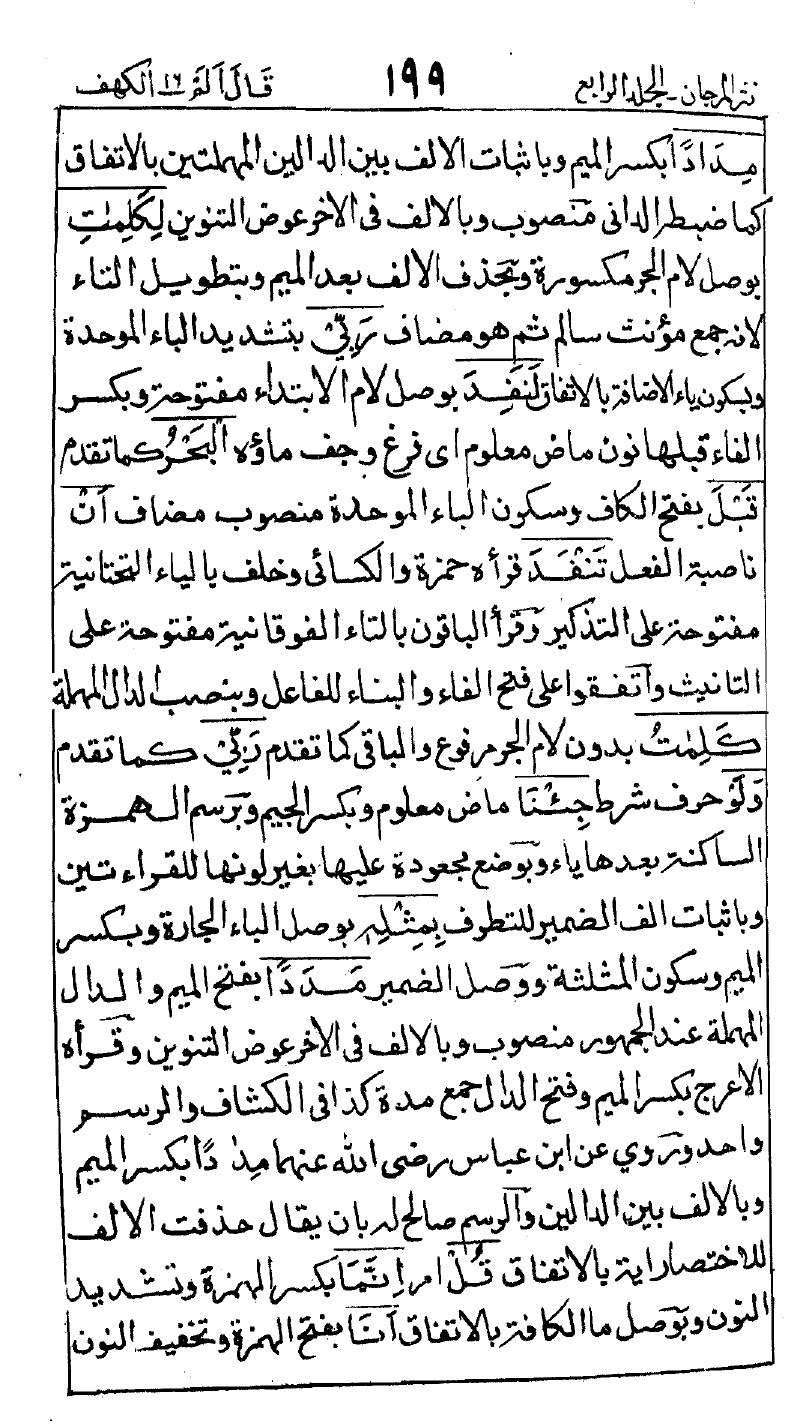 نثر المرجان - الجلد الرابع ١٩٩ قَالَ اَلَمْ ١٦ الكهف
مِدَادًا بكسر الميم وباثبات الالف بين الدالين المهملتين بالاتفاق
كما ضبطر الدانى منصوب وبالالف فى الاخر عوض التنوين لِكَلِمٰتِ
بوصل لام الجر مكسورة وبحذف الالف بعد الميم وبتطويل التاء
لانه جمع مؤنث سالم ثم هو مضاف رَبِّيْ بتشديد الباء الموحدة
وبسكون ياء الاضافة بالاتفاق لَنَفِدَ بوصل لام الابتداء مفتوحة وبكسر
الفاء قبلها نون ماض معلوم اى فرغ وجف ماؤه الْبَحْرُ كما تقدم
قَبْلَ بفتح الكاف وسكون الباء الموحدة منصوب مضاف اَنْ
ناصبة الفعل تَنْفَدَ قرأه حمزة والكسائى وخلف بالياء التحتانية
مفتوحة على التذكير وقرأ الباقون بالتاء الفوقانية مفتوحة على
التانيث واتفقوا على فتح الفاء والبناء للفاعل وبنصب الدال المهملة
كَلِمٰتُ بدون لام الجر مرفوع والباقى كما تقدم رَبِّيْ كما تقدم
وَلَوْ حرف شرط جِئْنَا ماض معلوم وبكسر الجيم وبرسم الهمزة
الساكنة بعدها ياء وبوضع مجعودة عليها بغير لونها للقراءتين
وباثبات الف الضمير للتطرف بِمِثْلِهٖ بوصل الباء الجارة وبكسر
الميم وسكون المثلثة ووصل الضمير مَدَدًا بفتح الميم والدال
المهملة عند الجمهور منصوب وبالالف فى الاخر عوض التنوين وقرأه
الاعرج بكسر الميم وفتح الدال جمع مدة كذا فى الكشاف والرسم
واحد وروي عن ابن عباس رضى الله عنهما مِدٰدًا بكسر الميم
وبالالف بين الدالين والرسم صالح له بان يقال حذفت الالف
للاختصار اية بالاتفاق قُلْ امر اِنَّمَا بكسر الهمزة وتشديد
النون وبوصل ما الكافة بالاتفاق اَنَا بفتح الهمزة وتخفيف النون